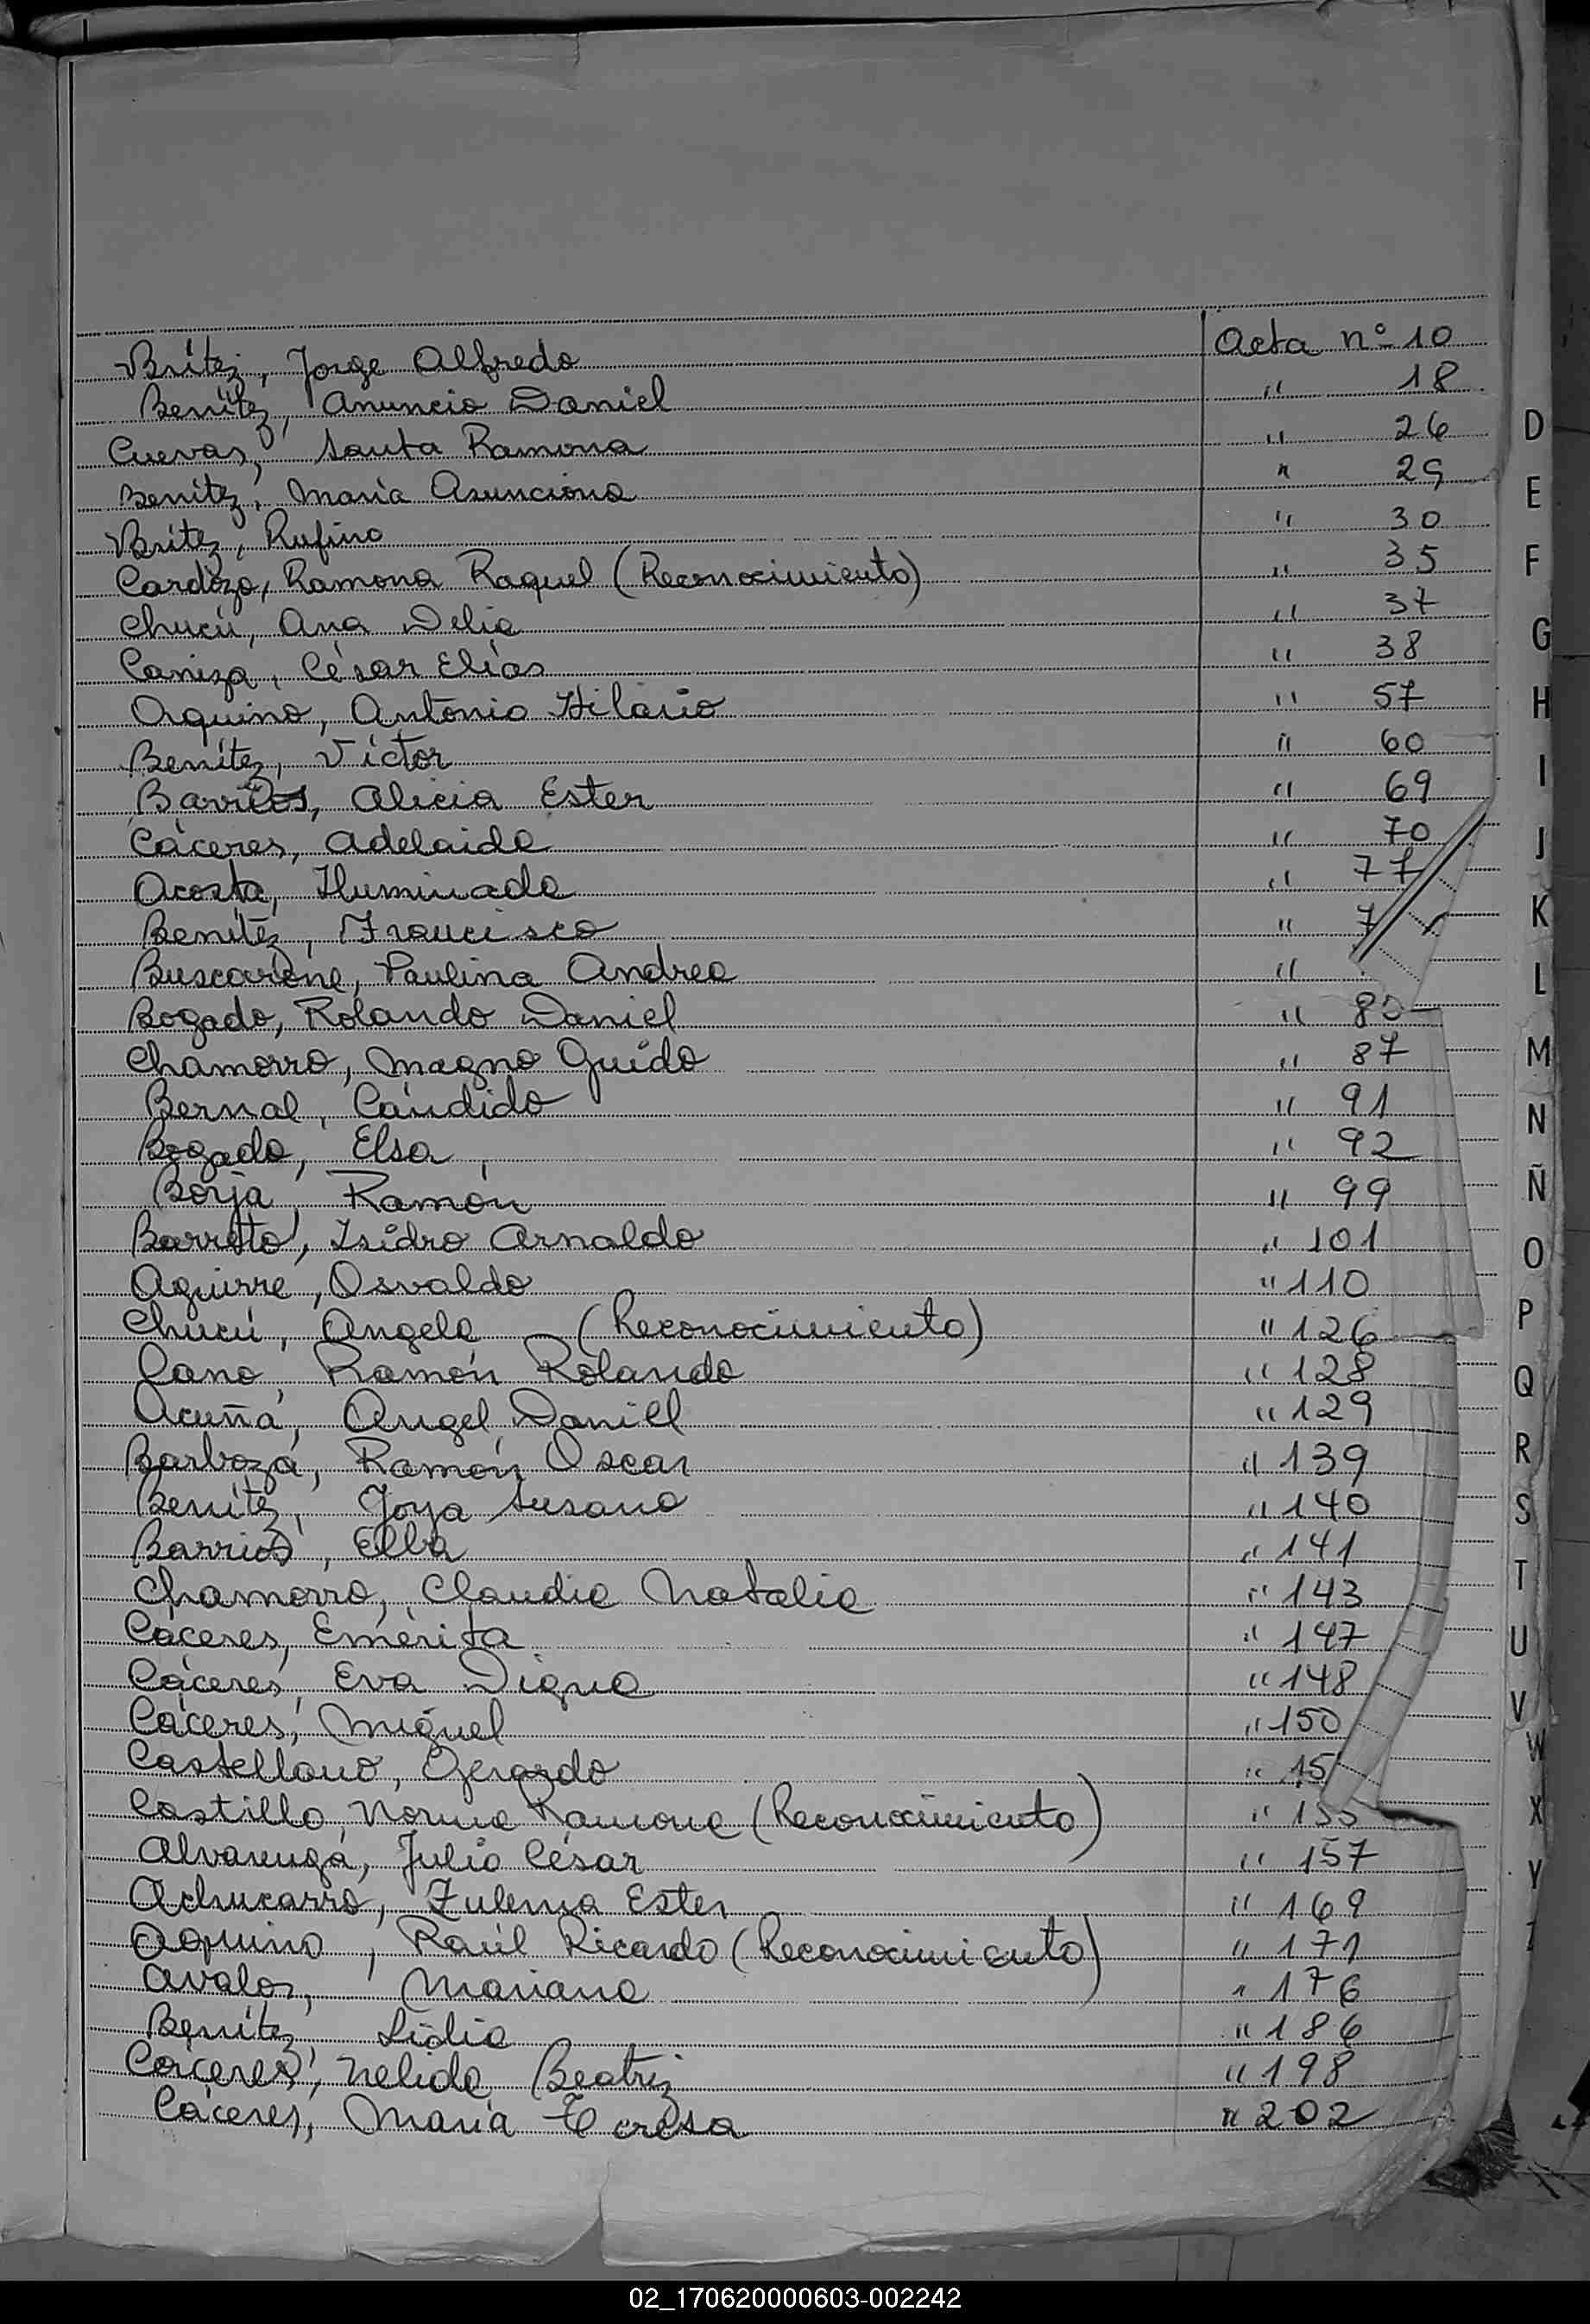 Brítez, Jorge Alfredo Acta nº 10
Benítez, Anuncio Daniel " 18
Cuevas, Santa Ramona " 26
Benítez, María Asunciona " 29
Brítez, Rufino " 30
Cardozo, Ramona Raquel (Reconocimiento) " 35
Chucú, Ana Delia " 37
Caniza, César Elías " 38
Aquino, Antonio Hilario " 57
Benítez, Víctor " 60
Barrios, Alicia Ester " 69
Cáceres, Adelaida " 70
Acosta, Iluminada " 77
Benítez, Francisco " 7
Buscarone, Paulina Andrea "
Bogado, Rolando Daniel " 80
Chamorro, Magno Guido " 87
Bernal, Cándido " 91
Bogado, Elsa " 92
Borja, Ramón " 99
Barreto, Isidro Arnaldo " 101
Aguirre, Osvaldo " 110
Chucú, Angela (Reconocimiento) " 126
Cano, Ramón Rolando " 128
Acuña, Angel Daniel " 129
Barboza, Ramón Oscar " 139
Benítez, Joya Susana " 140
Barrios, Elba " 141
Chamorro, Claudia Natalia " 143
Cáceres, Emérita " 147
Cáceres, Eva Digna " 148
Cáceres, Miguel " 150
Castellano, Gerardo " 15
Castillo, Norma Ramona (Reconocimiento) " 155
Alvarenga, Julio César " 157
Achucarro, Zulema Ester " 169
Aquino, Raúl Ricardo (Reconocimiento) " 171
Avalos, Mariana " 176
Benítez, Lidia " 186
Cáceres, Nelida Beatriz " 198
Cáceres, María Teresa " 202
D
E
F
G
H
I
J
K
L
M
N
Ñ
O
P
Q
R
S
T
U
V
W
X
Y
Z
02_170620000603-002242